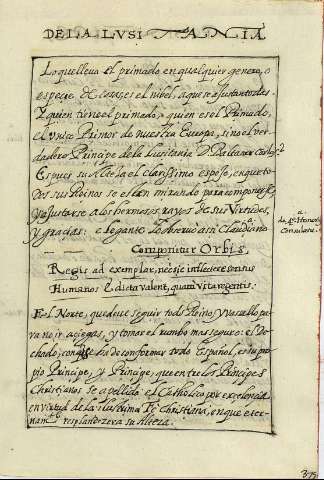 DE LA LVSITANIA
Lo que lleva el primado en qualquier genero, o
especie de cosas es el nibel, a que se ajustan todas.
Y quien tiene el primado, quien es el Primado,
el Vnico Primor de nuestra Europa, sino el ver
dadero Principe de la Lusitania D. Baltasar Carlos?
Espues su Alteza el clarissimo espejo, en que to
Dos sus Reinos se estan mirando para componerse,
y ajustarse a los hermosos rayos de sus Virtudes,
y gracias: elegante lo observo assi Claudiano
a.
Consulatu.
Componitur Orbis,
Regis ad exemplar, nec sic inflectere sensus
Humanos edicta valent, quam Vita regentis.
Es el Norte, que deve seguir todo Reino, y Vasallo pa
ra no ir a ciegas, y tomar el rumbo mas seguro: es De
chado, con que se ha de conformar todo Español, es su pro
pio Principe, y Principe, que entre los Principes
Christianos se apellido el Catholico por excelencia
en virtud de la ilustrissima Fè Christiana, en que eter-
namte. resplandezera su Alteza.